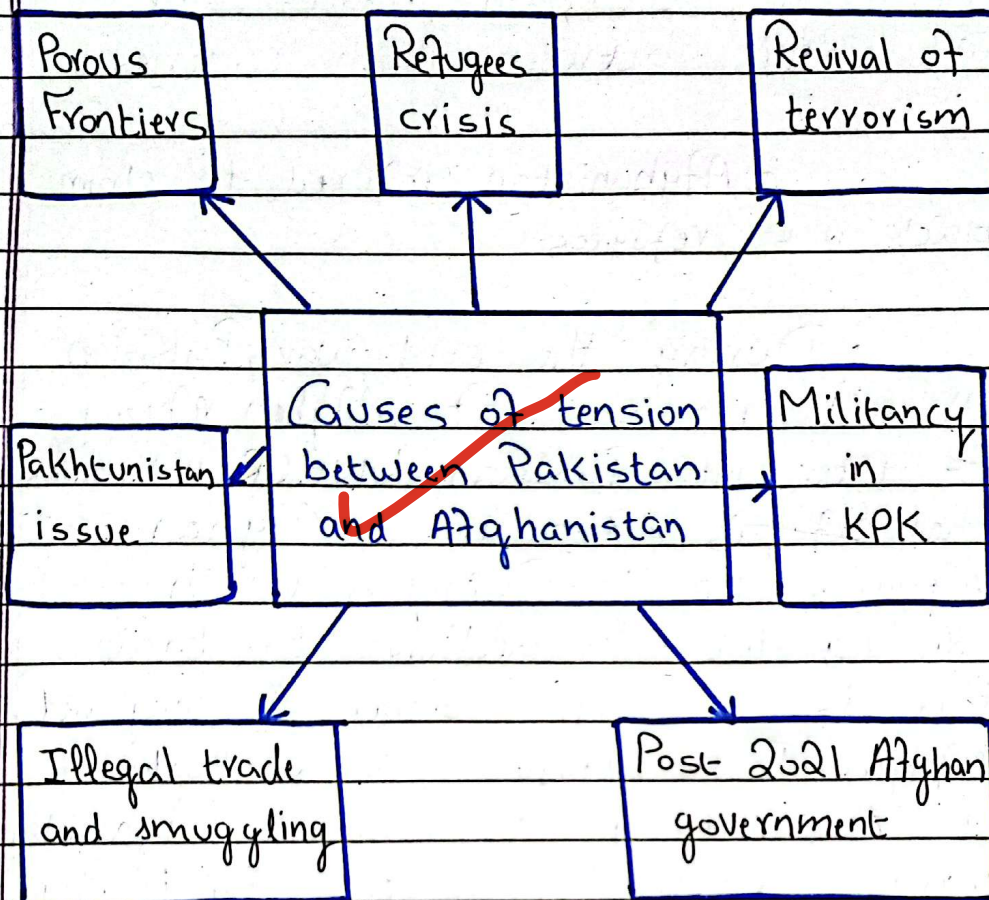 Porous
Frontiers
Refugees
crisis
Revival of
terrorism
Causes of tension
between Pakistan
and Afghanistan
Pakhtunistan
issue
Militancy
in
KPK
Illegal trade
and smuggling
Post 2021 Afghan
government